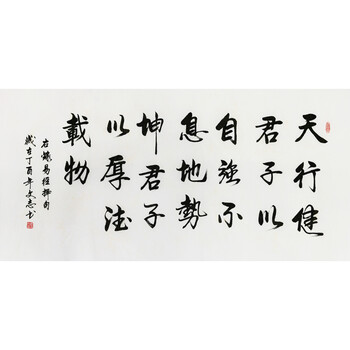 天行健
君子以
自強不
息地勢
坤君子
以厚德
載物
右錄易經擇句
歲在丁酉年文志書